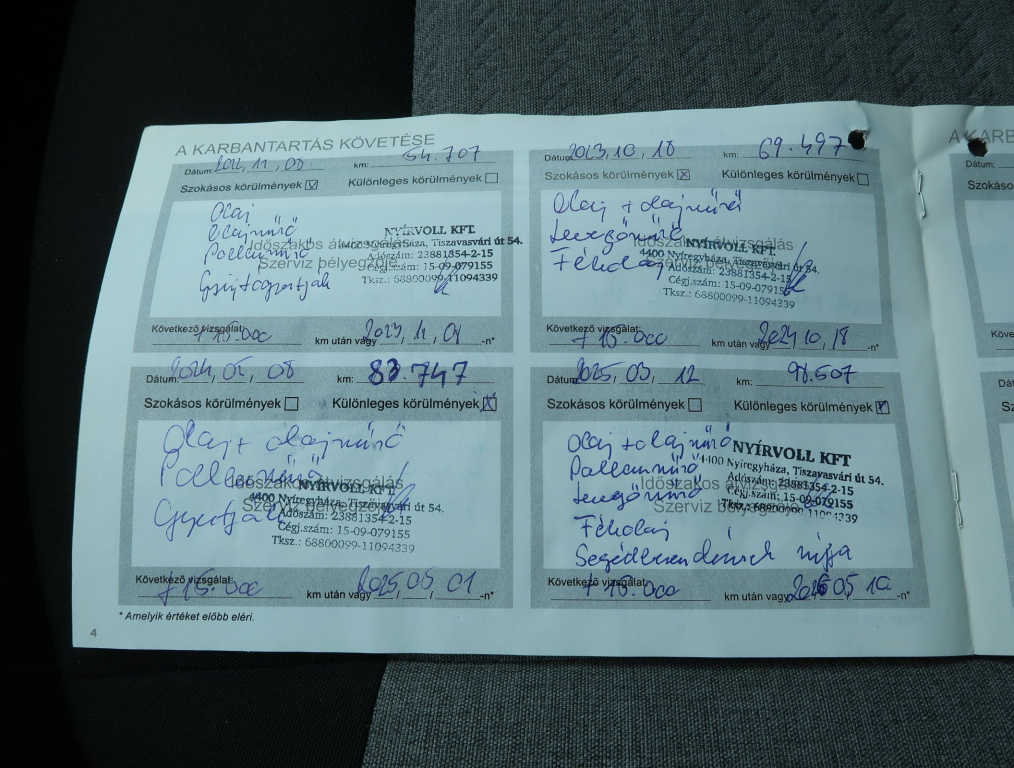 A KARBANTARTÁS KÖVETÉSE
Dátum: 2022, 11, 08. km: 54.707
Szokásos körülmények Különleges körülmények
Olaj
Olajszűrő
Pollenszűrő
Gyújtógyertyák
Időszakos átvizsgálás
Szerviz bélyegzője
NYÍRVOLL KFT.
4400 Nyíregyháza, Tiszavasvári út 54.
Adószám: 23881354-2-15
Cégj.szám: 15-09-079155
Tksz.: 68800099-11094339
Következő vizsgálat:
+ 15.000 km után vagy 2023, 11, 01 -n*
Dátum: 2023, 10, 18 km: 69.497
Szokásos körülmények Különleges körülmények
Olaj + olajszűrő
Levegőszűrő
Fékolaj
Időszakos átvizsgálás
Szerviz bélyegzője
NYÍRVOLL KFT.
4400 Nyíregyháza, Tiszavasvári út 54.
Adószám: 23881354-2-15
Cégj.szám: 15-09-079155
Tksz.: 68800099-11094339
Következő vizsgálat:
+ 15.000 km után vagy 2024 10, 18 -n*
Dátum: 2024, 05, 08 km: 83.747
Szokásos körülmények Különleges körülmények
Olaj + olajszűrő
Pollenszűrő
Időszakos átvizsgálás
Szerviz bélyegzője
NYÍRVOLL KFT.
4400 Nyíregyháza, Tiszavasvári út 54.
Adószám: 23881354-2-15
Cégj.szám: 15-09-079155
Tksz.: 68800099-11094339
Következő vizsgálat:
+ 15.000 km után vagy 2025 05 01 -n*
Dátum: 2025, 03, 12 km: 98.507
Szokásos körülmények Különleges körülmények
Olaj + olajszűrő
Pollenszűrő
Levegőszűrő
Fékolaj
Időszakos átvizsgálás
Szerviz bélyegzője
NYÍRVOLL KFT
4400 Nyíregyháza, Tiszavasvári út 54.
Adószám: 23881354-2-15
Cégj.szám: 15-09-079155
Tksz.: 68800099-11094339
Következő vizsgálat:
+ 15.000 km után vagy 2026 03 10 -n*
* Amelyik értéket előbb eléri.
4
A KARB
Dátum:
Szokáso
Követke
Dátu
Sz
Kö